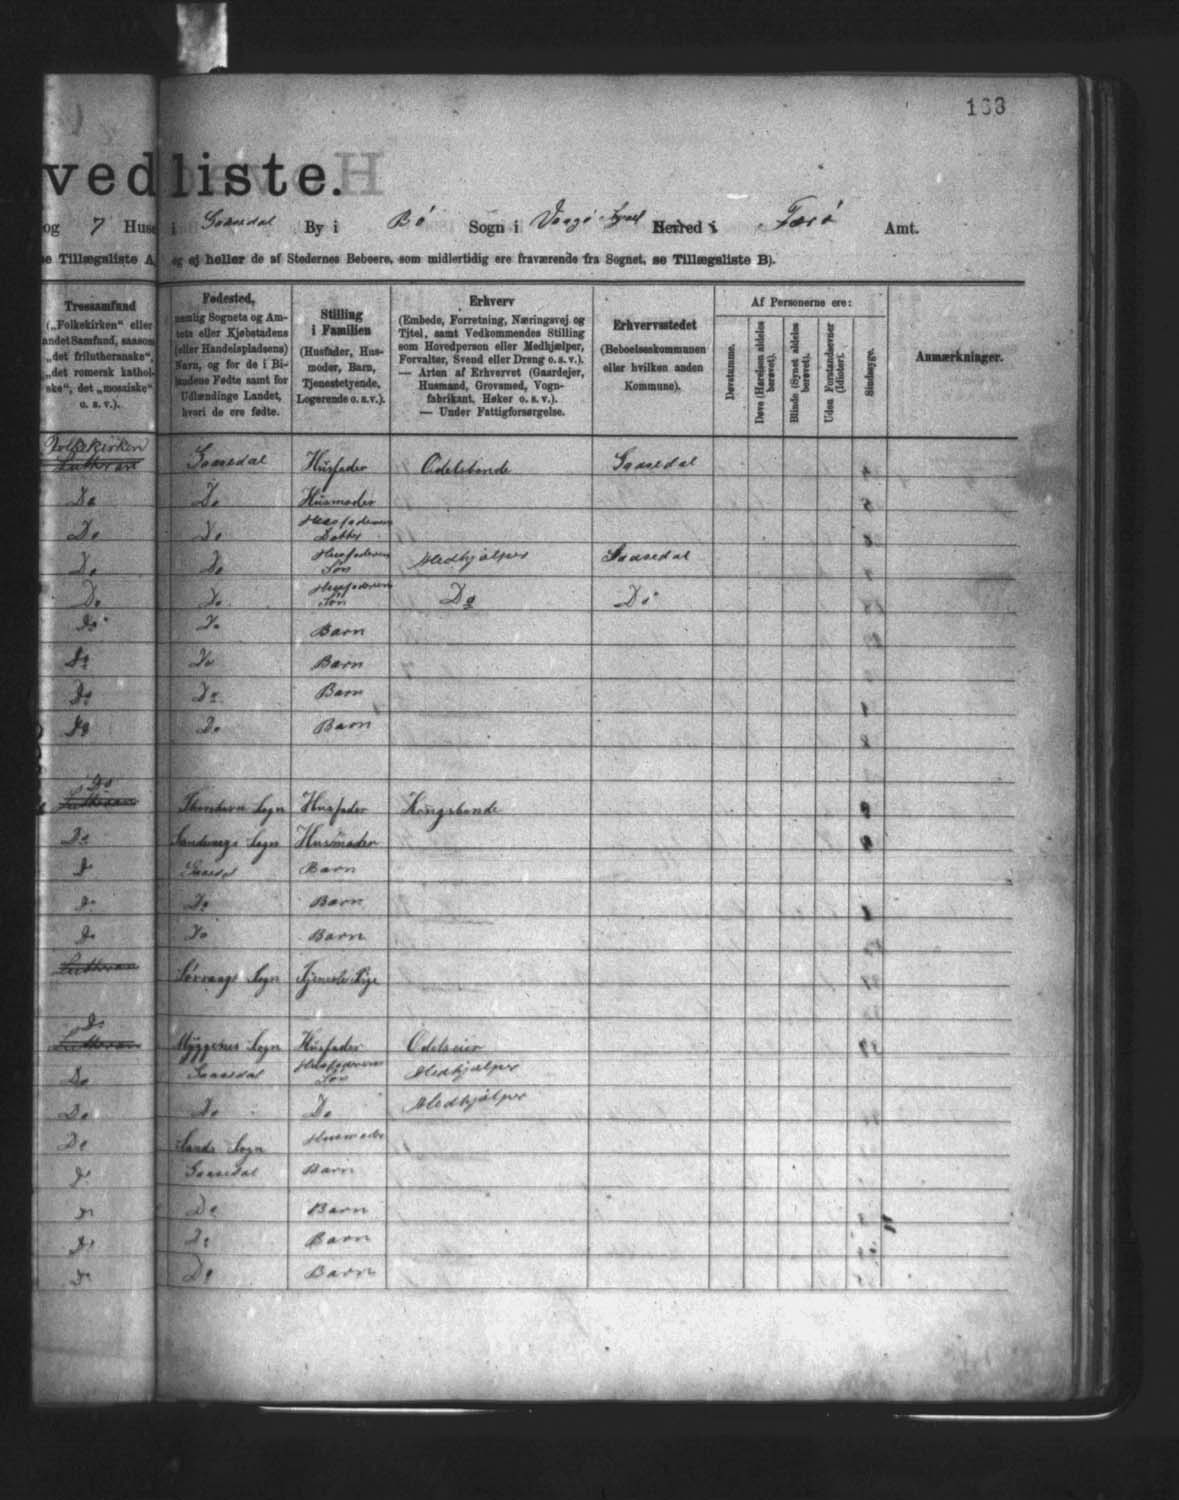 163
vedliste.
og 7 Huse i Gaasedal By i Bø Sogn i Vaagø Syssel Herred i Færø Amt.
se Tillægsliste A og ej heller de af Stedernes Beboere, som midlertidig ere fraværende fra Sognet, se Tillægsliste B).
Trossamfund
(„Folkekirken“ eller
andet Samfund, saasom
„det frilutheranske“,
„det romersk kathol-
ske“, det „mosaiske“
o. s. v.).
Fødested,
nemlig Sognets og Am-
tets eller Kjøbstadens
(eller Handelspladsens)
Navn, og for de i Bi-
landene Fødte samt for
Udlændinge Landet,
hvori de ere fødte.
Stilling
i Familien
(Husfader, Hus-
moder, Barn,
Tjenestetyende,
Logerende o.s.v.).
Erhverv
(Embede, Forretning, Næringsvej og
Titel, samt Vedkommendes Stilling
som Hovedperson eller Medhjælper,
Forvalter, Svend eller Dreng o.s.v.).
— Arten af Erhvervet (Gaardejer,
Husmand, Grovsmed, Vogn-
fabrikant, Høker o. s. v.).
— Under Fattigforsørgelse.
Erhvervsstedet
(Beboelseskommunen
eller hvilken anden
Kommune).
Af Personerne ere:
Døvstumme.
Døve (Hørelsen aldeles
berøvet).
Blinde (Synet aldeles
berøvet).
Uden Forstandsevner
(Idioter).
Sindssyge.
Anmærkninger.
Folkekirken
Luthran Gaasedal Husfader Odelsbonde Gaasedal
Do Do Husmoder
Do Do Husfaderens
Datter
Do Do Husfaderens Medhjälper Gaasedal
Søn
Do Do Husfaderens Do Do
Søn
Do Do Barn
Do Do Barn
Do Do Barn
Do Do Barn
Do
Luthran Thorshavn Sogn Husfader Kongsbonde
Do Sandevaags Sogn Husmoder
Do Gaasedal Barn
Do Do Barn
Do Do Barn
Luthran Sørvaags Sogn Tjeneste Pige
Do
Luthran Myggenes Sogn Husfader Odelseier
Do Gaasedal Husfaderens Medhjælper
Søn
Do Do Do Medhjälper
Do Sands Sogn Husmoder
Do Gaasedal Barn
Do Do Barn
Do Do Barn
Do Do Barn